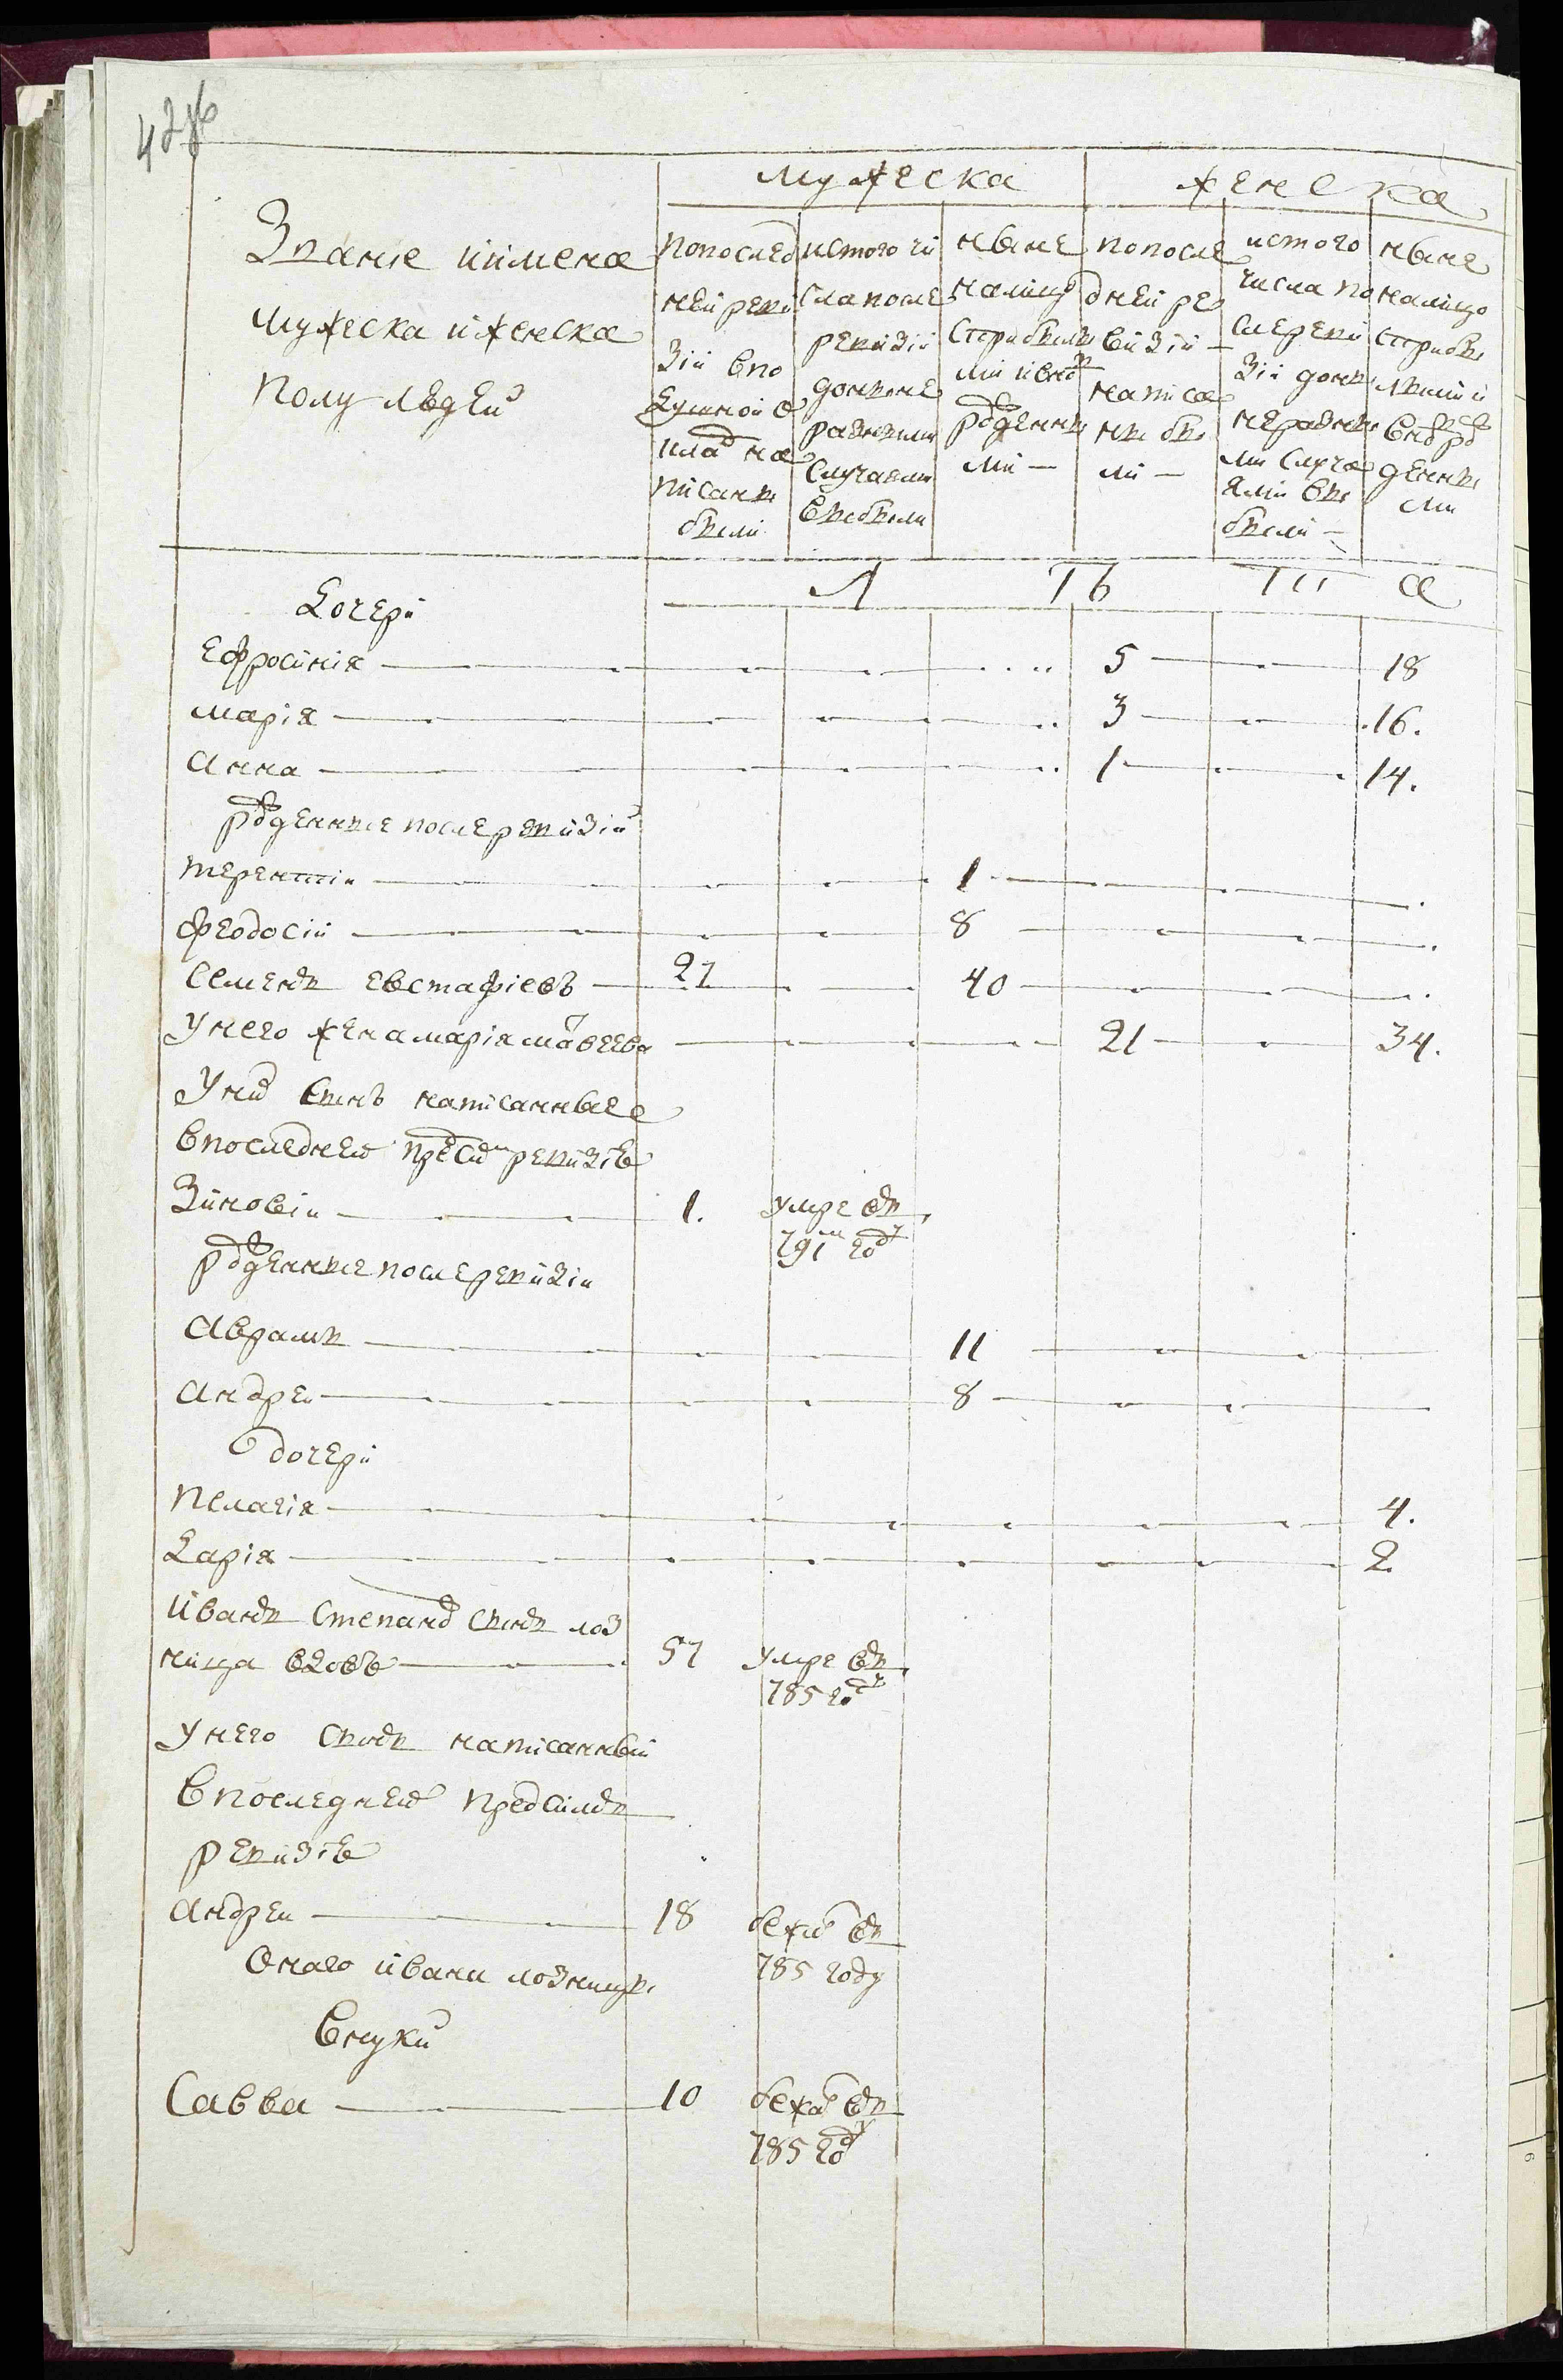 428об
мужеска женска
Звание и имена
мужеска и женска
полу людей
попослед
ней реви
зіи впо
душной о
клад на
писаны
были
истого чи
сла после
ревизіи
доныне
разными
случаями
выбыли
ныне
налицо
сприбылы
ми ивнов
рожденны
ми —
попосле
дней ре
визіи —
написа
ны бы
ли —
истого
числа по
слереви
зіи доны
неразны
ми случа
ями вы
были —
ныне
налицо
сприбы
лыми и
вновь рож
денны
ми
Л Ѣ Т А
Дочери
Ефросинія 5 18
марія 3 16.
Анна 1 14.
рожденные послеревизіи
терентіи 1
феодосіи 8
Семенъ евстафіевъ 27 40
Унего жена марія матвеева 21 34.
Уних сынъ написанные
впоследней пред сим ревизіе
Зиновіи 1. умре въ
791м году
рожденные послеревизіи
Аврамъ 11
Андреи 8
дочери
Пелагія 4.
Дарія 2
Иванъ Степанов сынъ лоз
ница вдовъ 57 умре въ
785 году
Унего сынъ написанный
впоследней предсимъ
ревизіе
Андреи 18 бежал въ
785 году
Онаго ивана лозницы
Внуки
Савва 10 бежал въ
785 году